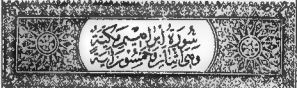 سورة ابراهيم مكية
وهي اثنتان وخمسون آية